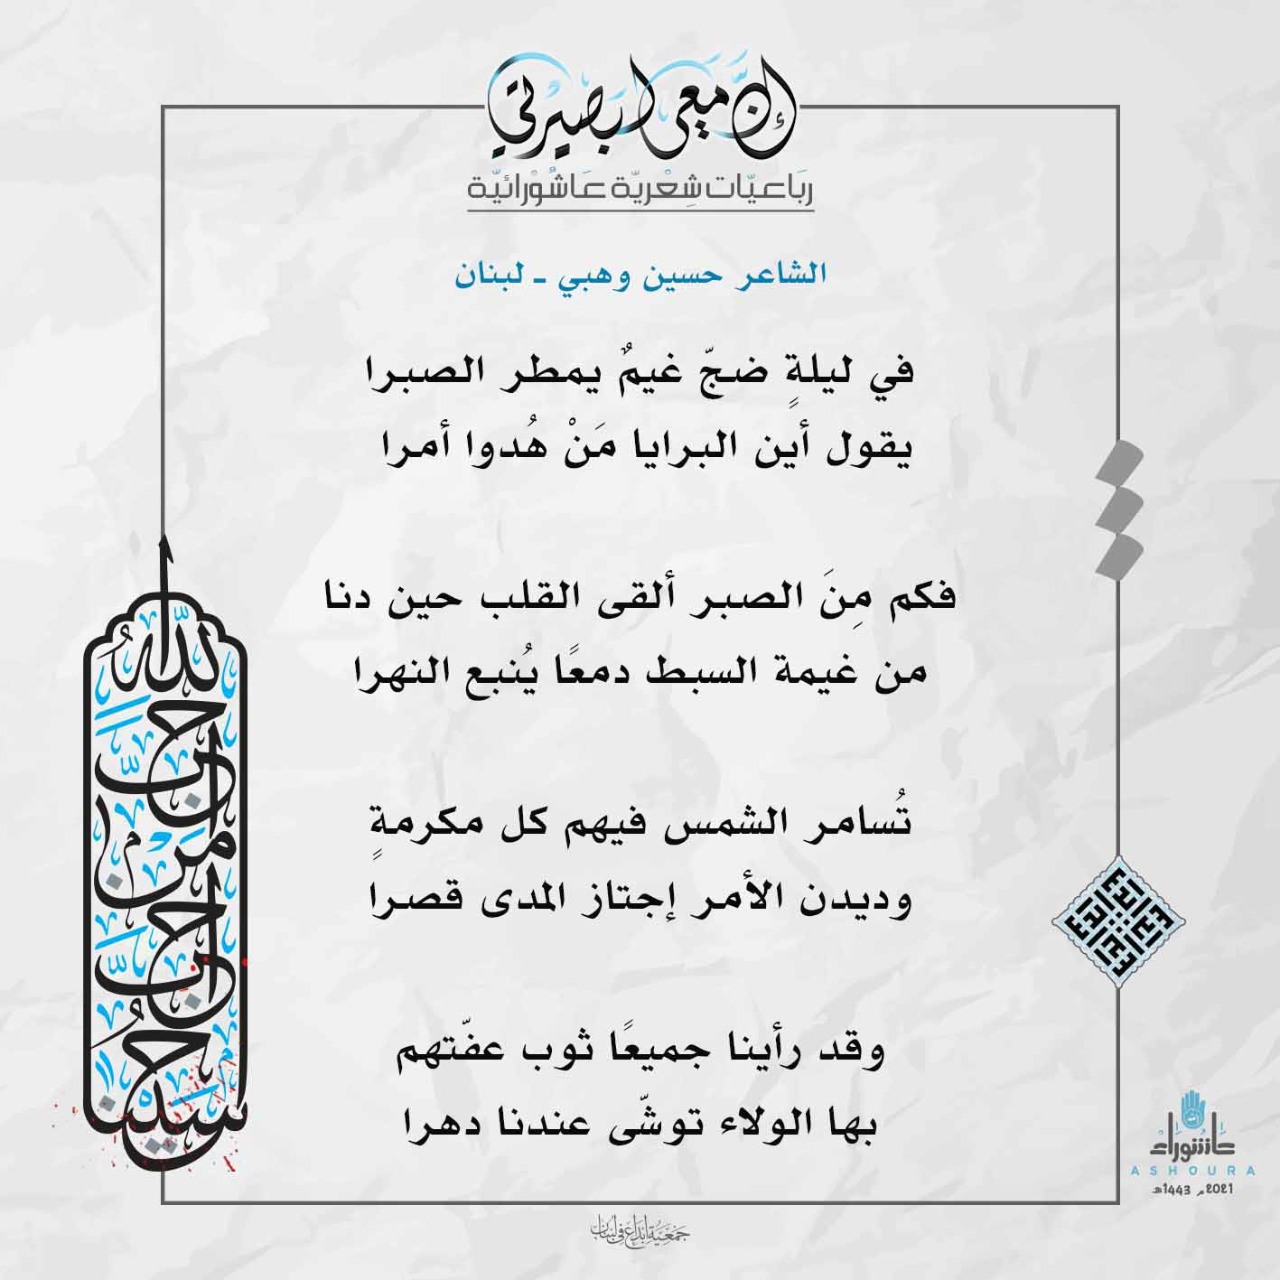 إنَّ مَعِي لَبَصِيرَتِي
رباعيّات شِعْريّة عَاشُورائيّة
الشاعر حسين وهبي ـ لبنان
في ليلةٍ ضجّ غيمٌ يمطر الصبرا
يقول أين البرايا مَنْ هُدوا أمرا
فكم مِنَ الصبر ألقى القلب حين دنا
من غيمة السبط دمعًا يُنبع النهرا
تُسامر الشمس فيهم كل مكرمةٍ
وديدن الأمر إجتاز المدى قصرا
وقد رأينا جميعًا ثوب عفّتهم
بها الولاء توشّى عندنا دهرا
أحَبَّ اللهُ مَنْ أحَبَّ حُسَيْنا
عاشوراء
ASHOURA
2021م 1443هـ
جمعية إبداع في لبنان